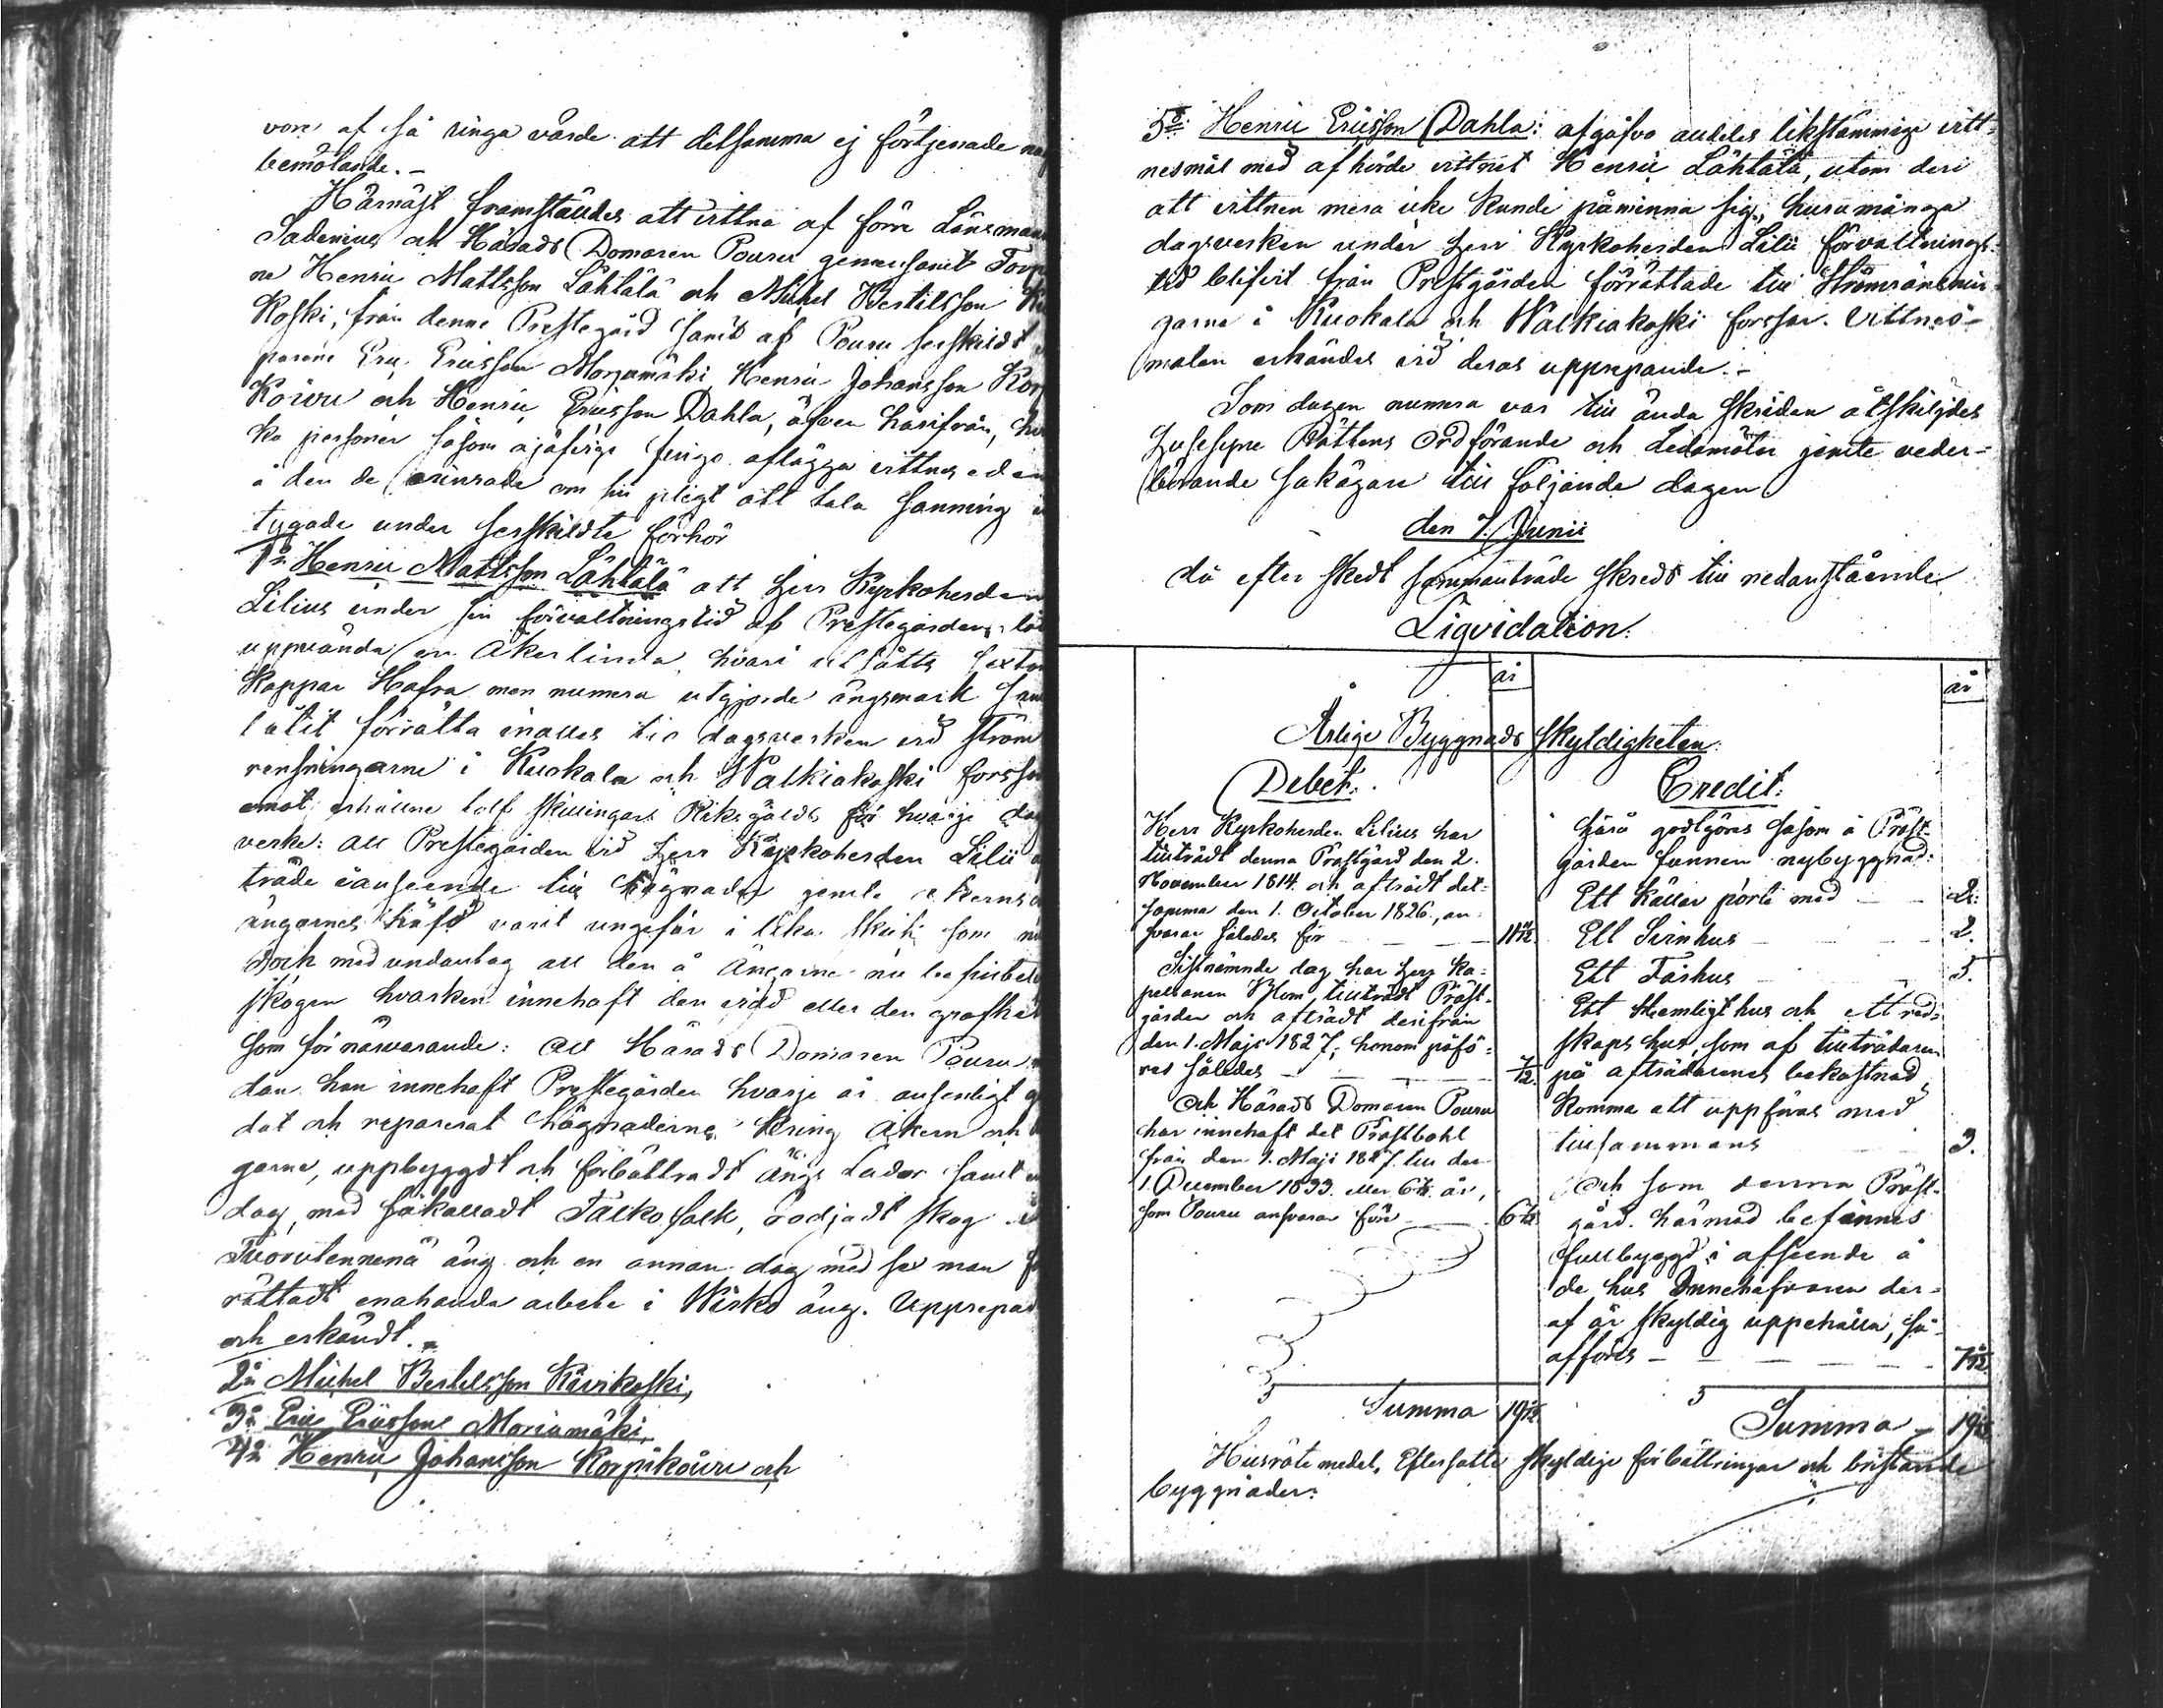 vore af så ringa värde att detsamma ej förtjenade
bemötande. -
Härnäst framstäldes att vittna af förre Länsman
Sadenius och Härads Domaren Pouru gemensamt Torp
ne Henric Mattsson Lähtälä och Michel Bertilsson
koski, från denne Prestegård samt af Pouru serskildt
parene Eric Ericsson Moriamäki, Henric Johansson Kor
koiwu och Henric Ericsson Dahla, äfven härifrån,
ka personer såsom ojäfvige fingo aflägga vittnes eden
å den de erinrade om sin pligt att tala sanning
tygade under serskildte förhör
1:o Henric Mattsson Lähtälä att Herr Kyrkoherden
Lilius under sin förvaltningstid af Prestegården, låt
uppvända en Åkerlinda hvari utsåtts sexton
kappar Hafra men numera utgjorde ängsmark sam
låtit förrätta inalles tio dagsverken vid ström
rensningarne i Kuokala och Walkiakoski forssar
emot erhållne tolf skillingars Riksgälds för hvarje dag
verke: att Prestegården vid Herr Kyrkoherden Lilii
träde i anseende till hägnader jemte åkerns
ängarnes häfd varit ungefär i lika skick som nu
dock med undantag att den å ängarne nu befintel
skogen hvarken innehaft den vidd eller den grofhet
som för närvarande: att Härads Domaren Pouru
dan han innehaft Prestegården hvarje år ansenligt
dat och reparerat hägnaderne kring Åkern och
garne, uppbyggdt och förbättradt Ängs Lador samt
dag, med såkalladt Talkofolk, rödjadt skog
Tuorulennenä äng och en annan dag med sex man
rättadt enahanda arbete i Wirko äng. Upprepadt
och erkändt. -
2:o Michel Bertelsson Kivikoski,
3:o Eric Ericsson Moriamäki,
4:o Henric Johansson Korpikoiwu och
5:o Henric Ericsson Dahla: afgåfvo aldeles likstämmige vitt-
nesmål med afhörde vittnet Henric Lähtälä, utom deri
att vittnen mera icke kunde påminna sig, huru många
dagsverken under Herr Kyrkoherden Lilii förvaltnings-
tid blifvit från Prestgården förrättade till Strömränsnin
garne i Kuokala och Walkiakoski forssar. Vittnes-
målen erkändes vid deras upprepande. -
Som dagen numera var till ända skriden åtskiljdes
Husesyne Rättens Ordförande och Ledamöter jemte veder-
börande sakägare till följande dagen.
den 7. Junii
då efter skedt sammanträde skreds till nedanstående
Liqvidation.
år
år
Årlige Byggnads skyldigheten:
Debet:
Herr Kyrkoherden Lilius har
tillträdt denna Prästgård den 2.
November 1814. och afträdt det-
samma den 1. October 1826., an-
svarar således för - - - 11 11/12.
Sistnämnde dag har Herr Ka-
pellanen Blom tillträdt Präst-
gården och afträdt derifrån
den 1. Maji 1827, honom påfö-
res således - - - 7/12.
Och Härads Domaren Pouru
har innehaft det Prästbohl
från den 1. Maji 1827. till den
1. December 1833. eller 6 7/12. år,
som Pouru ansvarar före - - 6 7/12
Summa 19 1/12
Credit:
Härå godtgöres såsom å Präst-
gården funnen nybyggnad:
Ett källar pörte med - - 2.
Ett Svinhus - - - 2.
Ett Fårhus - - 5.
Ett Hemligt hus och ett red-
skaps hus, som af tillträdaren
på afträdarenes bekostnad
komma att uppföras med
tillsammans 3.
Och som denna Präst-
gård härmed befinnes
fullbyggd i afseende å
de hus Innehafvaren der-
af är skyldig uppehålla, så
afföres - - - - - 7 1/12
Summa - 19 1/12
Husröte medel, Eftersatte skyldige förbättringar och bristande
byggnader: